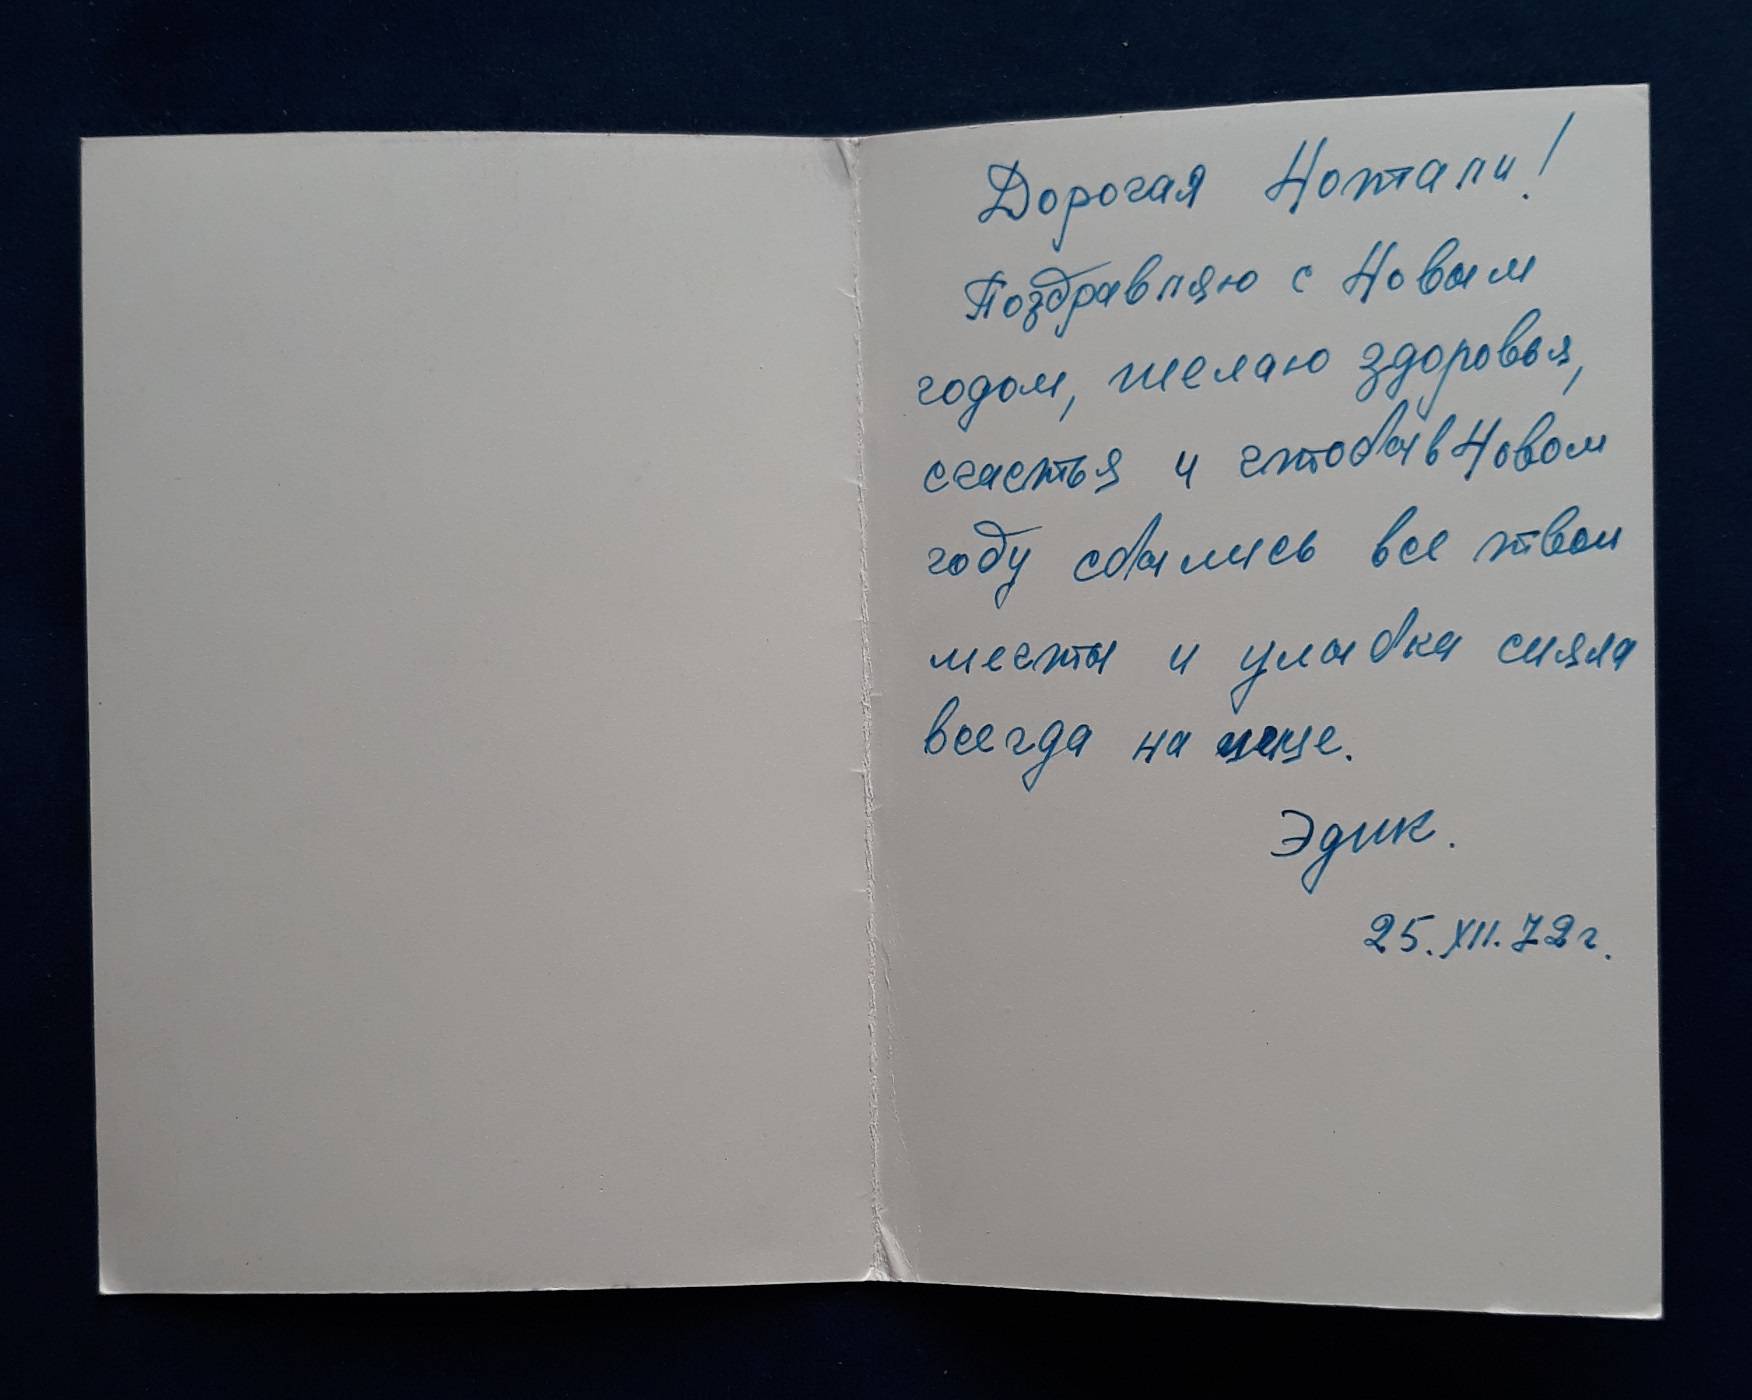 Дорогая Натали!
Поздравляю с Новым
годом, желаю здоровья,
счастья и чтобы в Новом
году сбылись все твои
мечты и улыбка сияла
всегда на лице.
Эдик.
25.XII.72г.